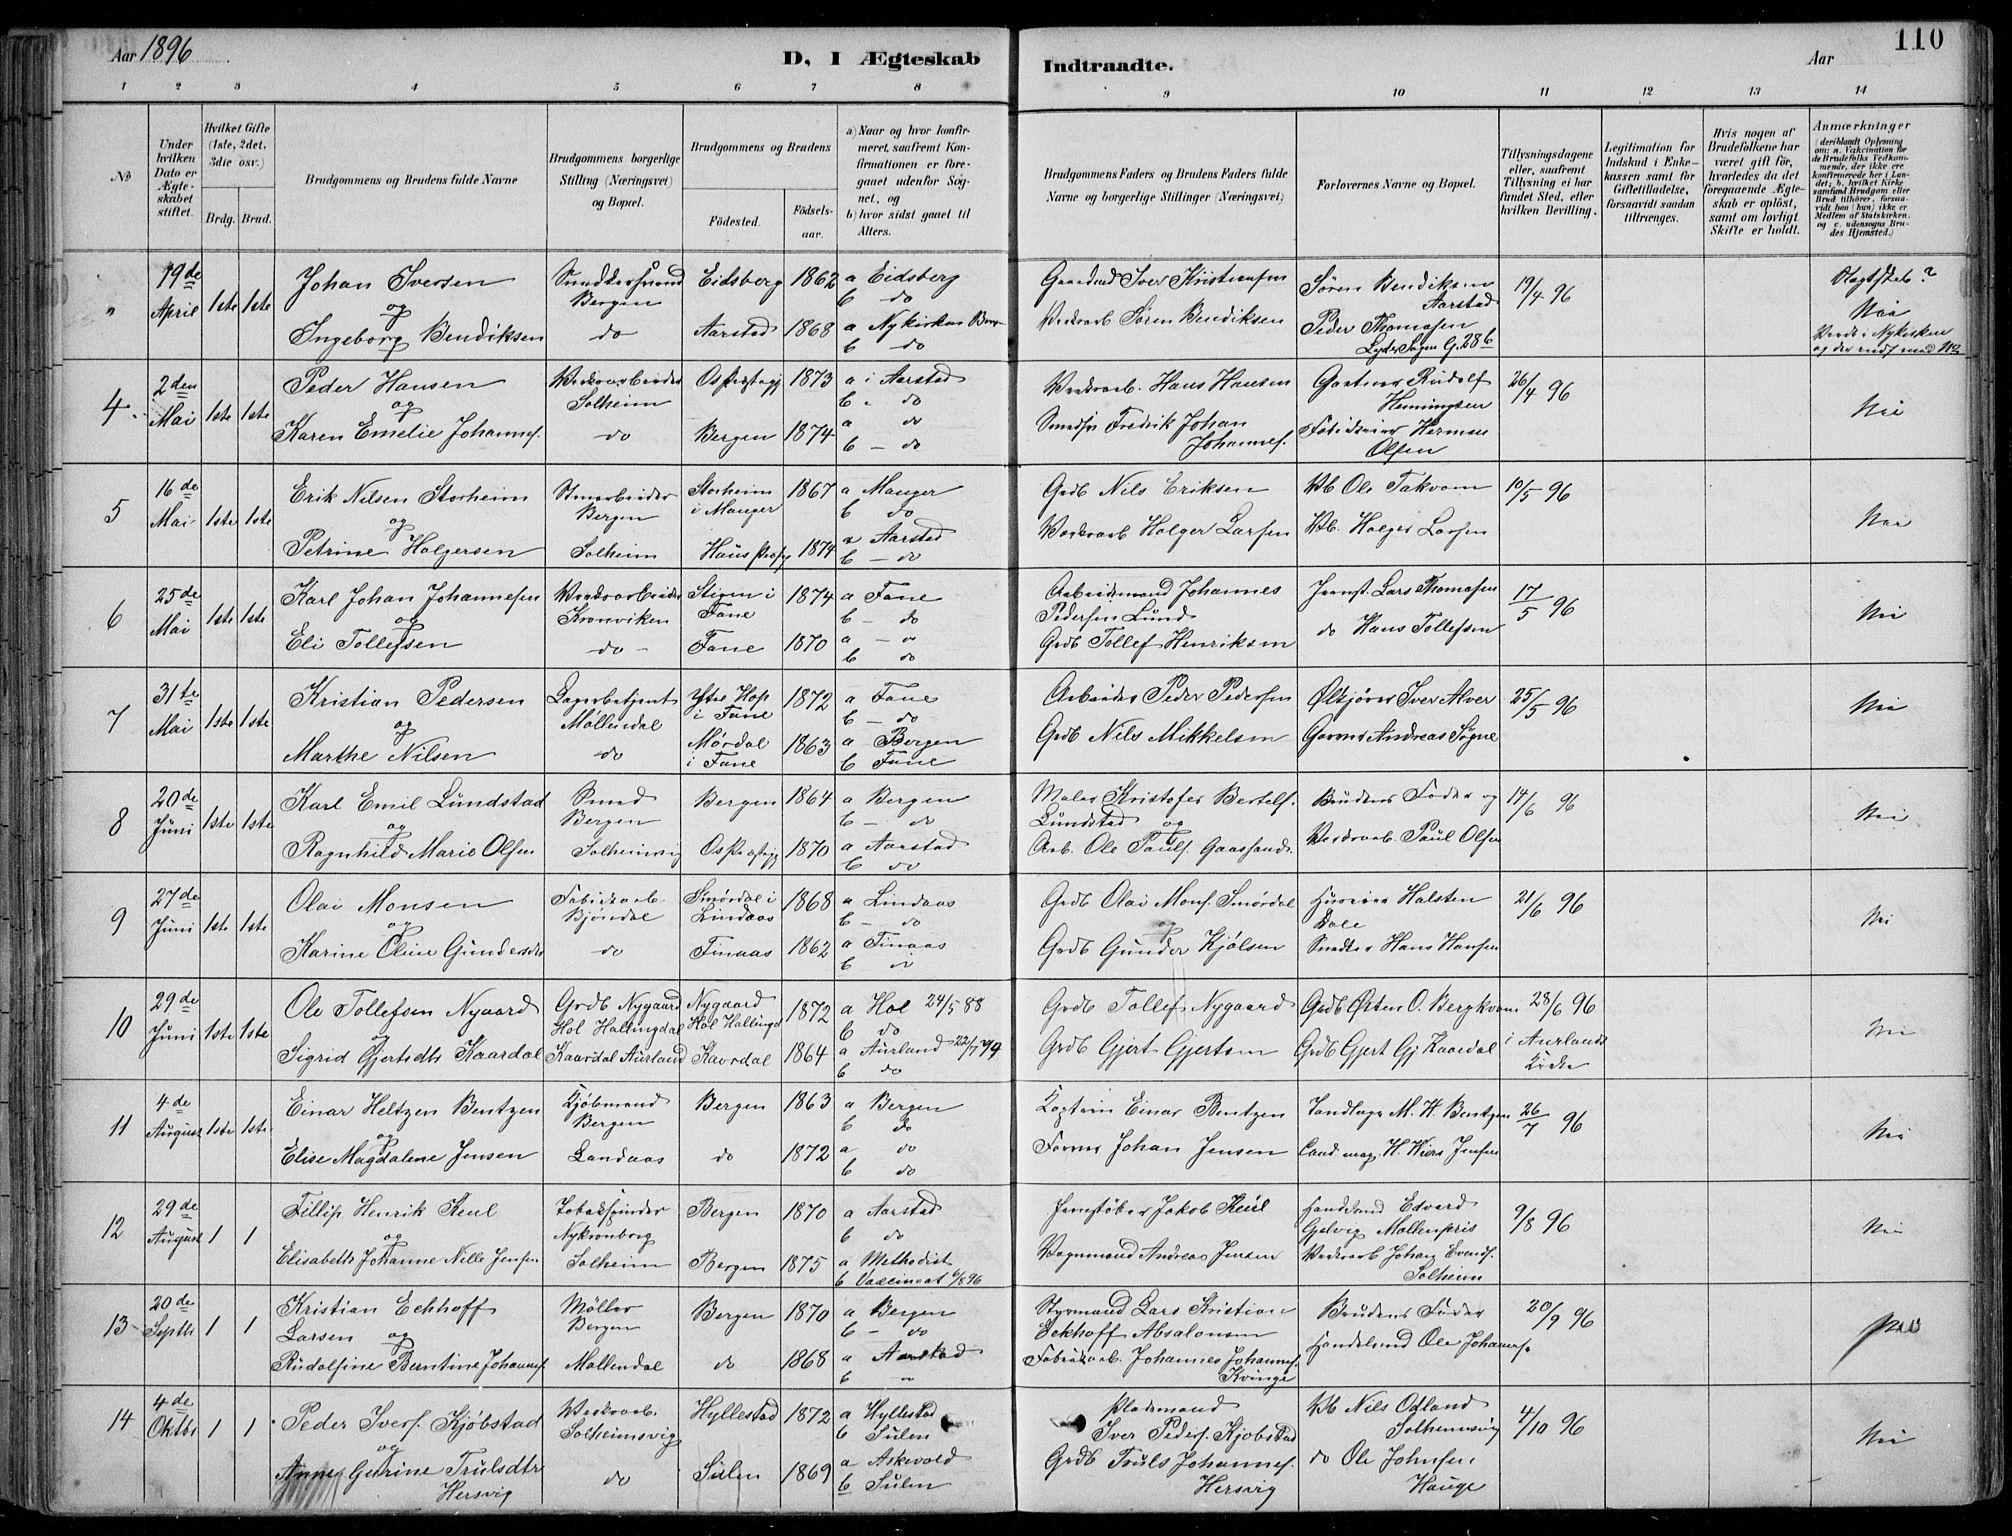 Aar 1896
D, I Ægteskab
Indtraadte.
Aar
110
1 2 3 4 5 6 7 8 9 10 11 12 13 14
№
Under hvilken Dato er Ægteskabet stiftet.
Hvilket Gifte (1ste, 2det, 3die osv.)
Brdg. Brud.
Brudgommens og Brudens fulde Navne
Brudgommens borgerlige Stilling (Næringsvei) og Bopæl.
Brudgommens og Brudens
Fødested.
Fødselsaar.
a) Naar og hvor konfirmeret, saafremt Konfirmationen er foregaaet udenfor Sognet, og
b) hvor sidst gaaet til Alters.
Brudgommens Faders og Brudens Faders fulde Navne og borgerlige Stillinger (Næringsvei)
Forlovernes Navne og Bopæl.
Tillysningsdagene eller, saafremt Tillysning ei har fundet Sted, efter hvilken Bevilling.
Legitimation for Indskud i Enkekassen samt for Giftetilladelse, forsaavidt saadan tiltrænges.
Hvis nogen af Brudefolkene har været gift før, hvorledes da det foregaaende Ægteskab er opløst, samt om lovligt Skifte er holdt.
Anmærkninger (deriblandt Oplysning om: a. Vakcination for de Brudefolks Vedkommende, der ikke ere konfirmerede her i Landet; b. hvilket Kirkesamfund Brudgom eller Brud tilhører, forsaavidt han (hun) ikke er Medlem af Statskirken, og c. udensogns Brudes Hjemsted.)
19de April 1ste 1ste
Johan Iversen
og
Ingeborg Bendiksen
Bergen
do
Eidsberg 1862 a Eidsberg
b do
Aarstad 1868 a Nykirken
b do
Gaardmd Iver Kristiansen
Værksarb Søren Bendiksen
Søren Bendiksen
Aarstad
Peder Thomasen
19/4 96
Slegtskab?
Nei
4 2den Mai 1ste 1ste
Peder Hansen
og
Karen Emelie Johannes.
Værksarbeider
Solheim
do
Os Præstegj 1873 a i Aarstad
b - do
Bergen 1874 a do
b - do
Værksarb. Hans Hansen
Fredrik Johan
Johannes.
Gartner Rudolf
Henningsen
Herman
Olsen
26/4 96
Nei
5 16de Mai 1ste 1ste
Erik Nilsen Storheim
og
Petrine Holgersen
Bergen
Solheim
Storheim
i Manger 1867 a Manger
b do
Haus Præstgj 1874 a Aarstad
b - do
Grdb Nils Eriksen
Værksarb Holger Larsen
Vb Ole Takvam
Vb. Holger Larsen
10/5 96
Nei
6 25de Mai 1ste 1ste
Karl Johan Johannesen
og
Eli Tollefsen
Værksarbeider
Kronviken
- do -
Stigen i
Fane 1874 a Fane
b - do
Fane 1870 a - "
b do
Arbeidsmand Johannes
Pedersen Lund
Grdb Tollef Henriksen
Jernst. Lars Thomasen
do Hans Tollefsen
17/5 96
Nei
7 31te Mai 1ste 1ste
Kristian Pedersen
og
Marthe Nilsen
Lagerbetjent
Møllendal
do
Ytre Hop
i Fane 1872 a Fane
b - do
Mørdal
i Fane 1863 a Bergen
b Fane
Arbeider Peder Pedersen
Grdb Nils Mikkelsen
Ølkjører Iver Alver
Garver Andreas Søgne
25/5 96
Nei
8 20de Juni 1ste 1ste
Karl Emil Lundstad
og
Ragnhild Marie Olsen
Smed
Bergen
Solheimsvig
Bergen 1864 a Bergen
b - do
Os Præstegj 1870 a Aarstad
b do
Maler Kristofer Bertels.
Lundstad og
Arb. Ole Pauls. Gaassand.
Brudens Fader og
Værksarb Paul Olsen
14/6 96
Nei
9 27de Juni 1ste 1ste
Olai Monsen
og
Karine Oline Gundersdtr
Fabrikarb.
Bjøndal
do
Smørdal i
Lindaas 1868 a Lindaas
b - do
Finaas 1862 a Finaas
b "
Grdb Olai Mons. Smørdal
og
Grdb Gunder Kjølsen
Halsten
Dale
Hans Hansen
21/6 96
Nei
10 29de Juni 1ste 1ste
Ole Tollefsen Nygaard
og
Sigrid Gjertsdtr Kaardal
Grdb Nygaard
Hol Hallingdal
Kaardal Aurland
Nygaard
Hol Hallingd 1872 a Hol 24/5 88
b do
Kaardal 1864 a Aurland 22/7 79
b do
Grdb Tollef Nygaard
Grdb Gjert Gjertsen
Grdb Østen O. Bergkvam
Grdb Gjert Gj Kaardal
28/6 96
i Aurlands
Kirke
Nei
11 4de August 1ste 1ste
Einar Heltzen Bentzen
og
Elise Magdalene Jensen
Kjøbmand
Bergen
Landaas
Bergen 1863 a Bergen
b do
do 1872 a do
b do
Kaptein Einar Bentzen
Farver Johan Jensen
Tandlæge M. H. Bentzen
Cand mag. H. Wiers Jensen
26/7 96
Nei
12 29de August 1 1
Fillip Henrik Keul
og
Elisabeth Johanne Nille Jensen
Tobakspinder
Nykronborg
Solheim
Bergen 1870 a Aarstad
b do
Bergen 1875 a Methodist
b Vaccineret 6/8 96
Jernstøber Jakob Keul
Vognmand Andreas Jensen
Handelsmd Edvard
Gjelvig Møllenpris
Værksarb Johan Evens.
Solheim
9/8 96
Nei
13 20de Septbr 1 1
Kristian Eckhoff
Larsen og
Rudolfine Berntine Johannes.
Møller
Bergen
Møllendal
Bergen 1870 a Bergen
b - do
do 1868 a Aarstad
b "
Styrmand Lars Kristian
Eckhoff Absalonsen
Fabrikarb. Johannes Johannes.
Kvinge
Brudens Fader
Handelsmd Ole Johannes.
20/9 96
Nei
14 4de Oktbr 1 1
Peder Ivers. Kjøbstad
og
Anne Gurine Trulsdtr
Hersvig
Værksarb.
Solheimsvig
do
Hyllestad 1872 a Hyllestad
b Sulen
Sulen 1869 a Askevold
b Sulen
Pladsmand
Iver Peders. Kjøbstad
Grdb Truls Johannes.
Hersvig
Vb Nils Odland
Solheimsvig
do Ole Johnsen
Hauge
4/10 96
Nei